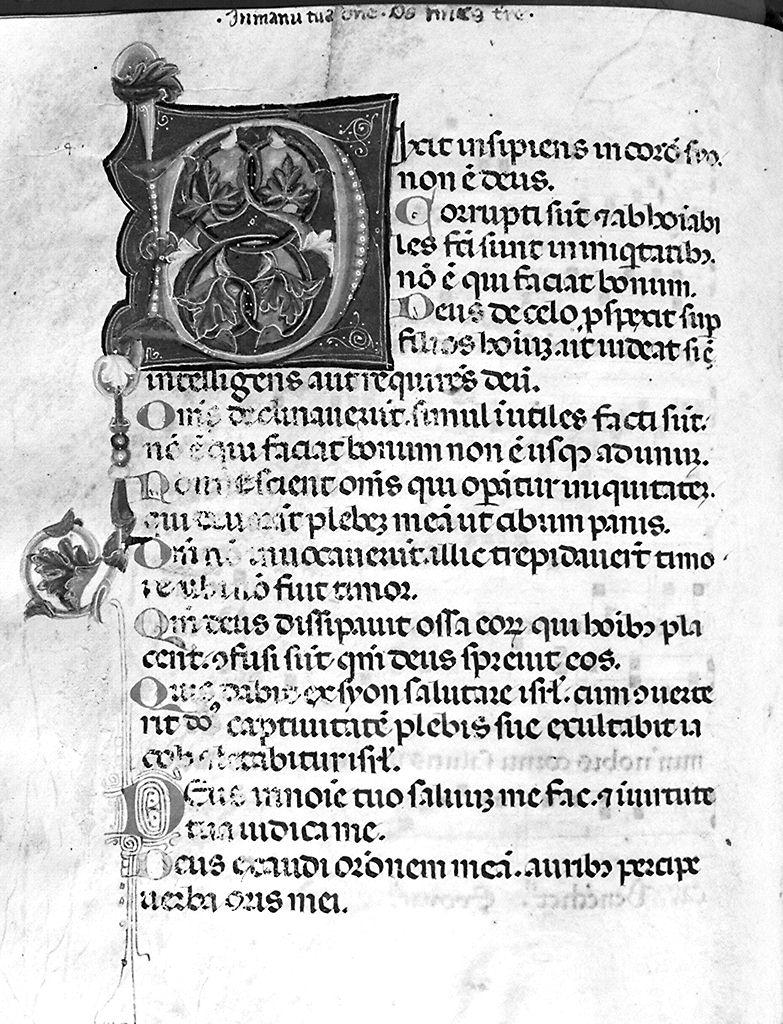 · Inmanu tua dne. Ds miſ tre ·
Dixit inſipiens in corde ſuo.
non ē deus.
Corrupti ſūt ⁊ abhoīabi
les fcī ſunt in iniqͥtatibꝫ.
nō ē qui faciat bonum.
Deus de celo pſpexit ſup
filios hoīuꝫ. ut uideat ſi ē
intelligens aut requirēs deū.
Om̄s declinauerūt. ſimul īutiles facti ſūt.
nō ē qui faciat bonum non ē uſqꝫ ad unuꝫ.
Nonne ſcient om̄s qui opātur iniquitateꝫ.
qui deuorāt plebeꝫ meā ut cibum panis.
Dm̄ nō inuocauerūt. illic trepidauerūt timo
re ubi nō fuit timor.
Qm̄ deus diſſipauit oſſa eoꝝ qui hoībꝫ pla
cent. ꝯfuſi ſūt qm̄ deus ſpreuit eos.
Quis dabit ex ſyon ſalutare iſrł. cum ꝯuerte
rit dn̄s captiuitatē plebis ſue exultabit ia
cob ⁊ letabitur iſrł.
Deus in noīe tuo ſaluuꝫ me fac. ⁊ ī uirtute
tua iudica me.
Deus exaudi orōnem meā. auribꝫ percipe
uerba oris mei.